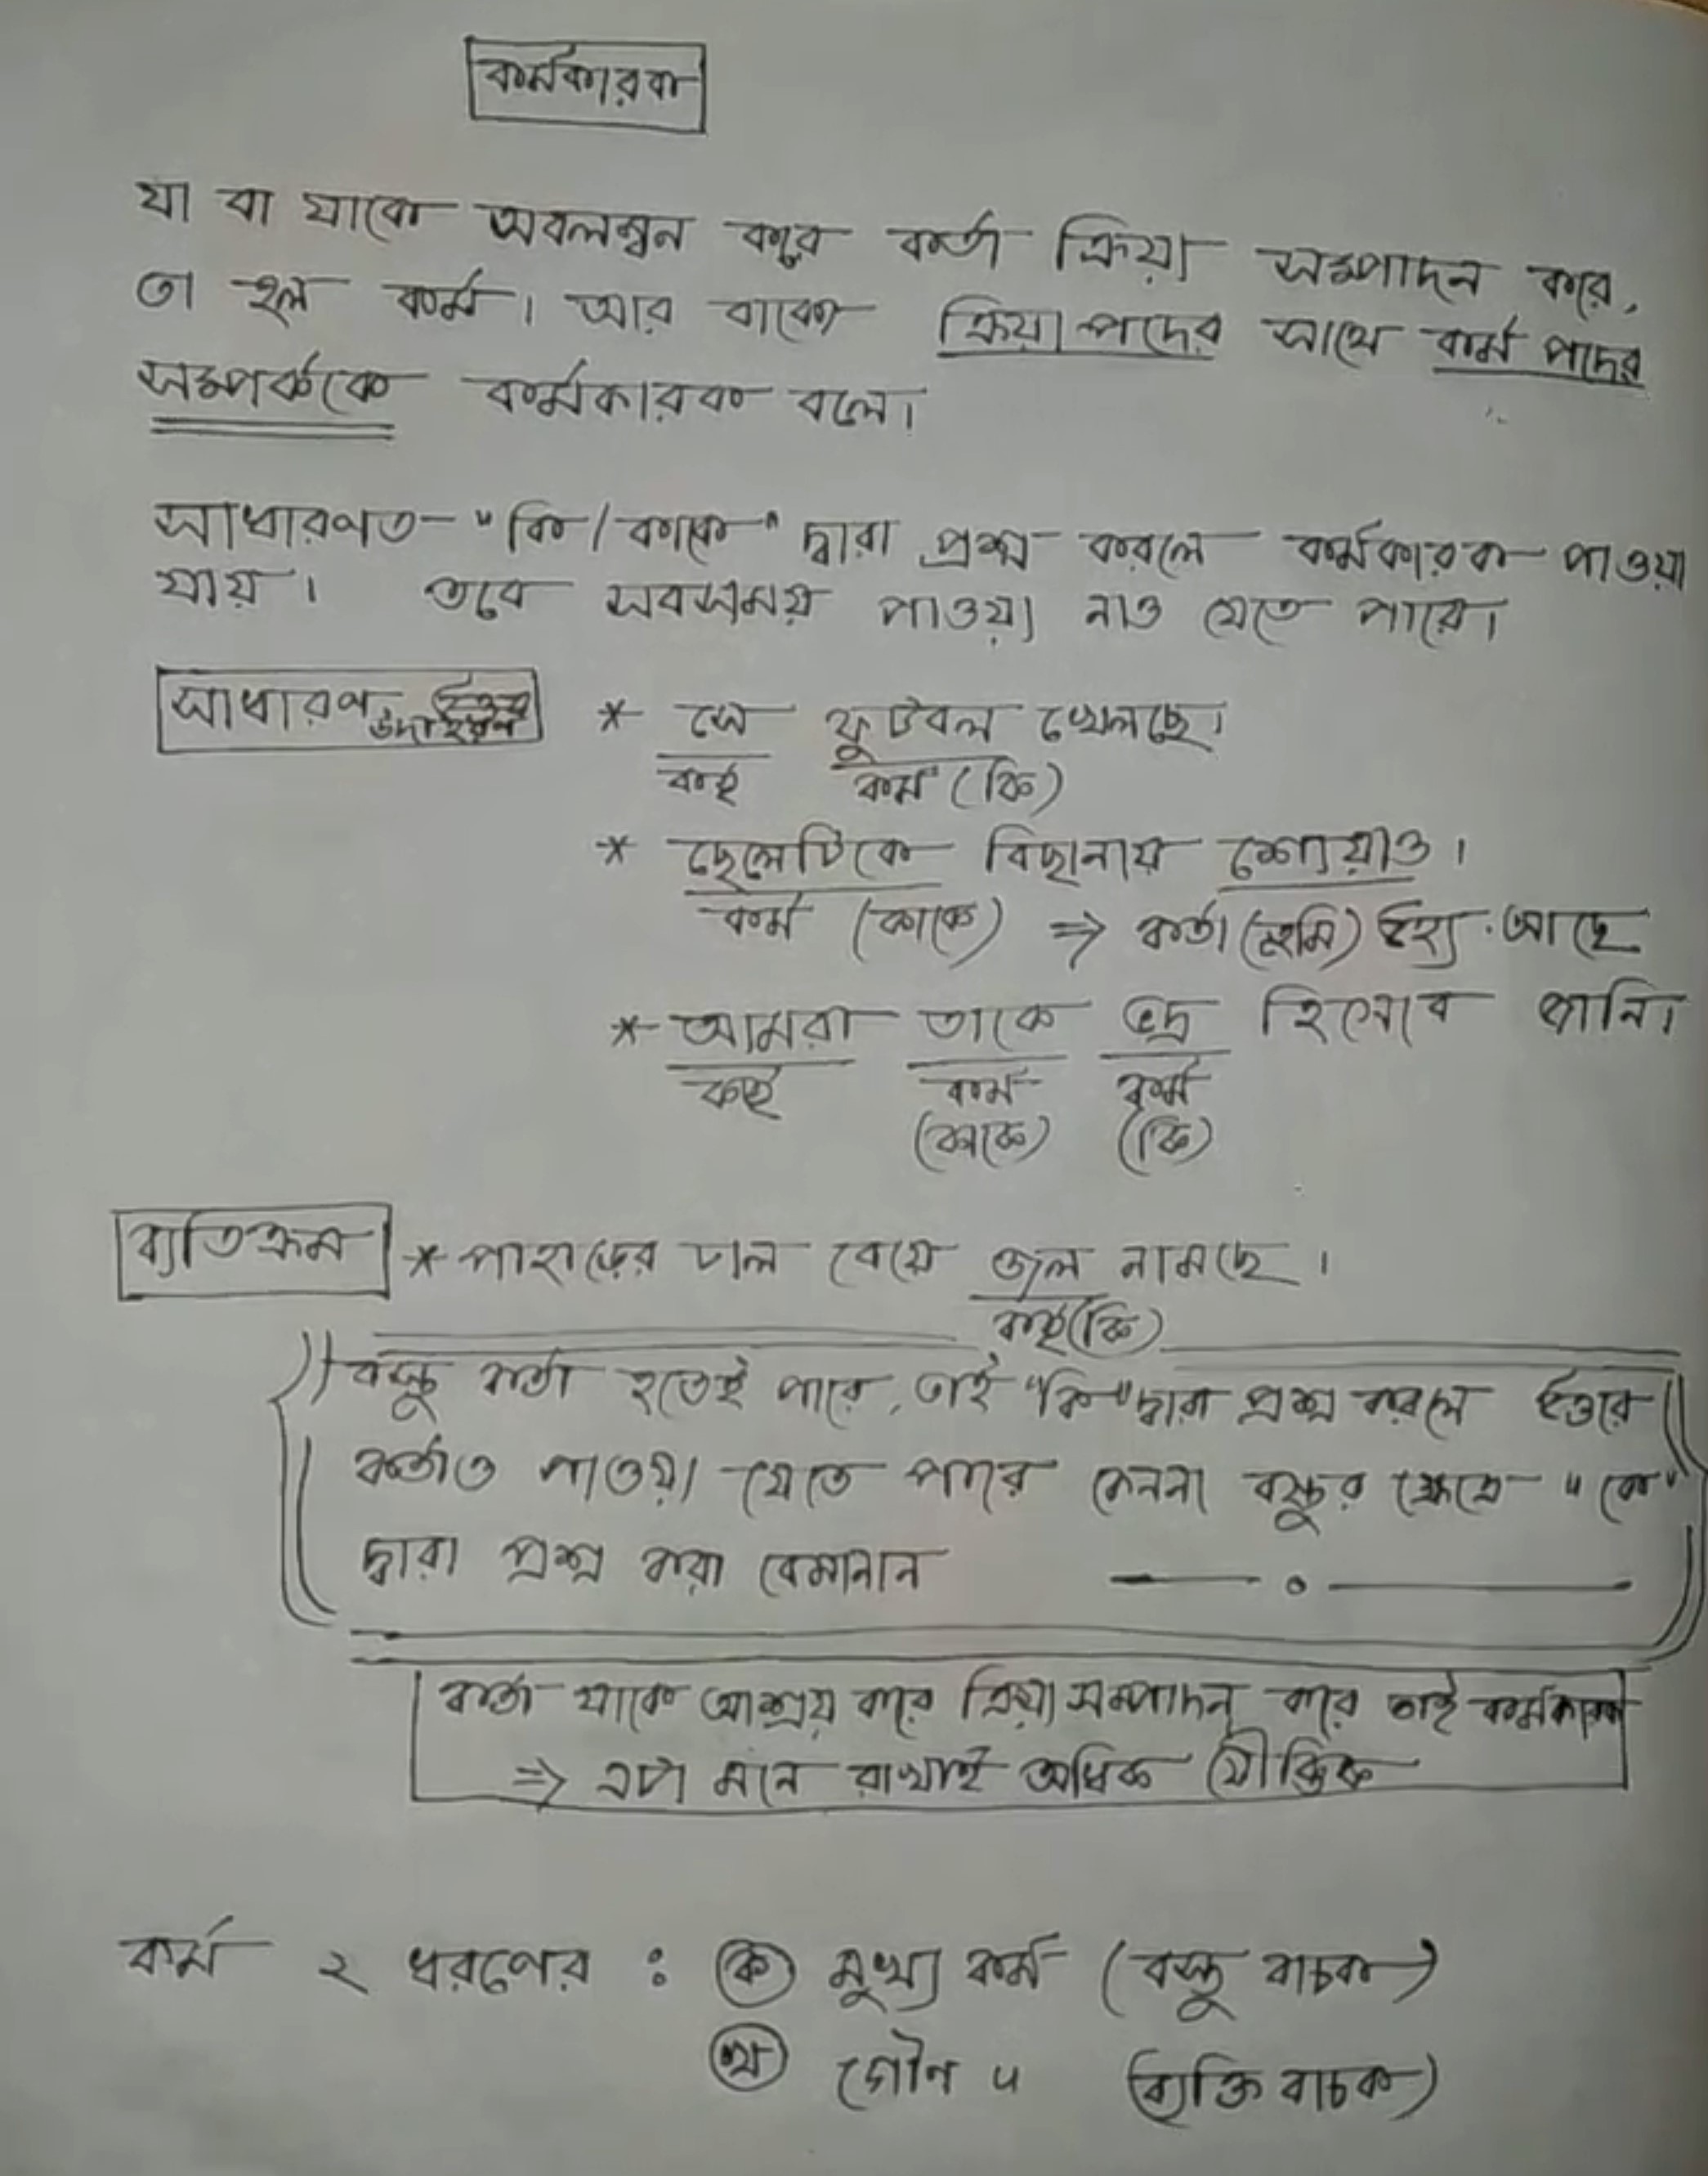 কর্মকারক
যা বা যাকে অবলম্বন করে কর্তা ক্রিয়া সম্পাদন করে,
তা হল কর্ম। আর বাক্যে ক্রিয়াপদের সাথে কর্ম পদের
সম্পর্ককে কর্মকারক বলে।
সাধারণত "কি/কাকে" দ্বারা প্রশ্ন করলে কর্মকারক পাওয়া
যায়। তবে সবসময় পাওয়া নাও যেতে পারে।
সাধারণ উদাহরণ
* সে ফুটবল খেলছে।
কর্তৃ কর্ম (কি)
* ছেলেটিকে বিছানায় শোয়াও।
কর্ম (কাকে) ⇒ কর্তা (তুমি) উহ্য আছে
* আমরা তাকে ভদ্র হিসেবে জানি।
কর্তৃ কর্ম কর্ম
(কাকে) (কি)
ব্যতিক্রম * পাহাড়ের ঢাল বেয়ে জল নামছে।
কর্তৃ(কি)
বস্তু কর্তা হতেই পারে, তাই "কি" দ্বারা প্রশ্ন করলে উত্তরে
কর্তাও পাওয়া যেতে পারে কেননা বস্তুর ক্ষেত্রে "কে"
দ্বারা প্রশ্ন করা বেমানান
কর্তা যাকে আশ্রয় করে ক্রিয়া সম্পাদন করে তাই কর্মকারক
⇒ এটা মনে রাখাই অধিক যৌক্তিক
কর্ম ২ ধরণের : (ক) মুখ্য কর্ম (বস্তু বাচক)
(খ) গৌণ " (ব্যক্তি বাচক)